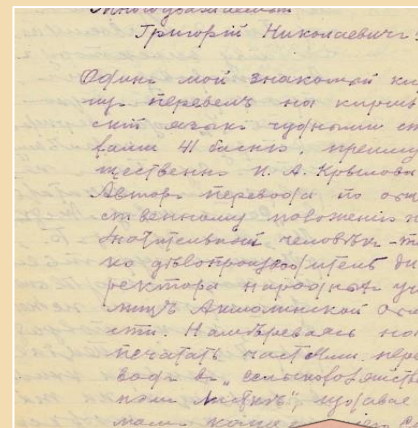 Многоуважаемый
Григорій Николаевичъ!
Одинъ мой знакомый ки
зъ перевелъ на кирги
скій языкъ чудными ст
хами 41 басню, преиму
щественно И. А. Крылова
Авторъ перевода по общ
ственному положенію н
значительный человѣкъ - то
ко дѣлопроизводитель ди
ректора народныхъ уч
лищъ Акмолинской обл
сти. Намѣреваясь на
печатать частями пере
водъ въ „сельскохозяйств
номъ листкѣ", издавае